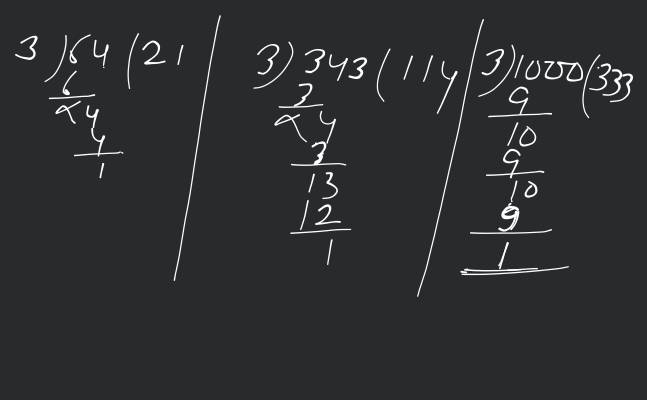 3)64(21
6
×4
4
1
3)343(114
3
×4
3
13
12
1
3)1000(333
9
10
9
10
9
1